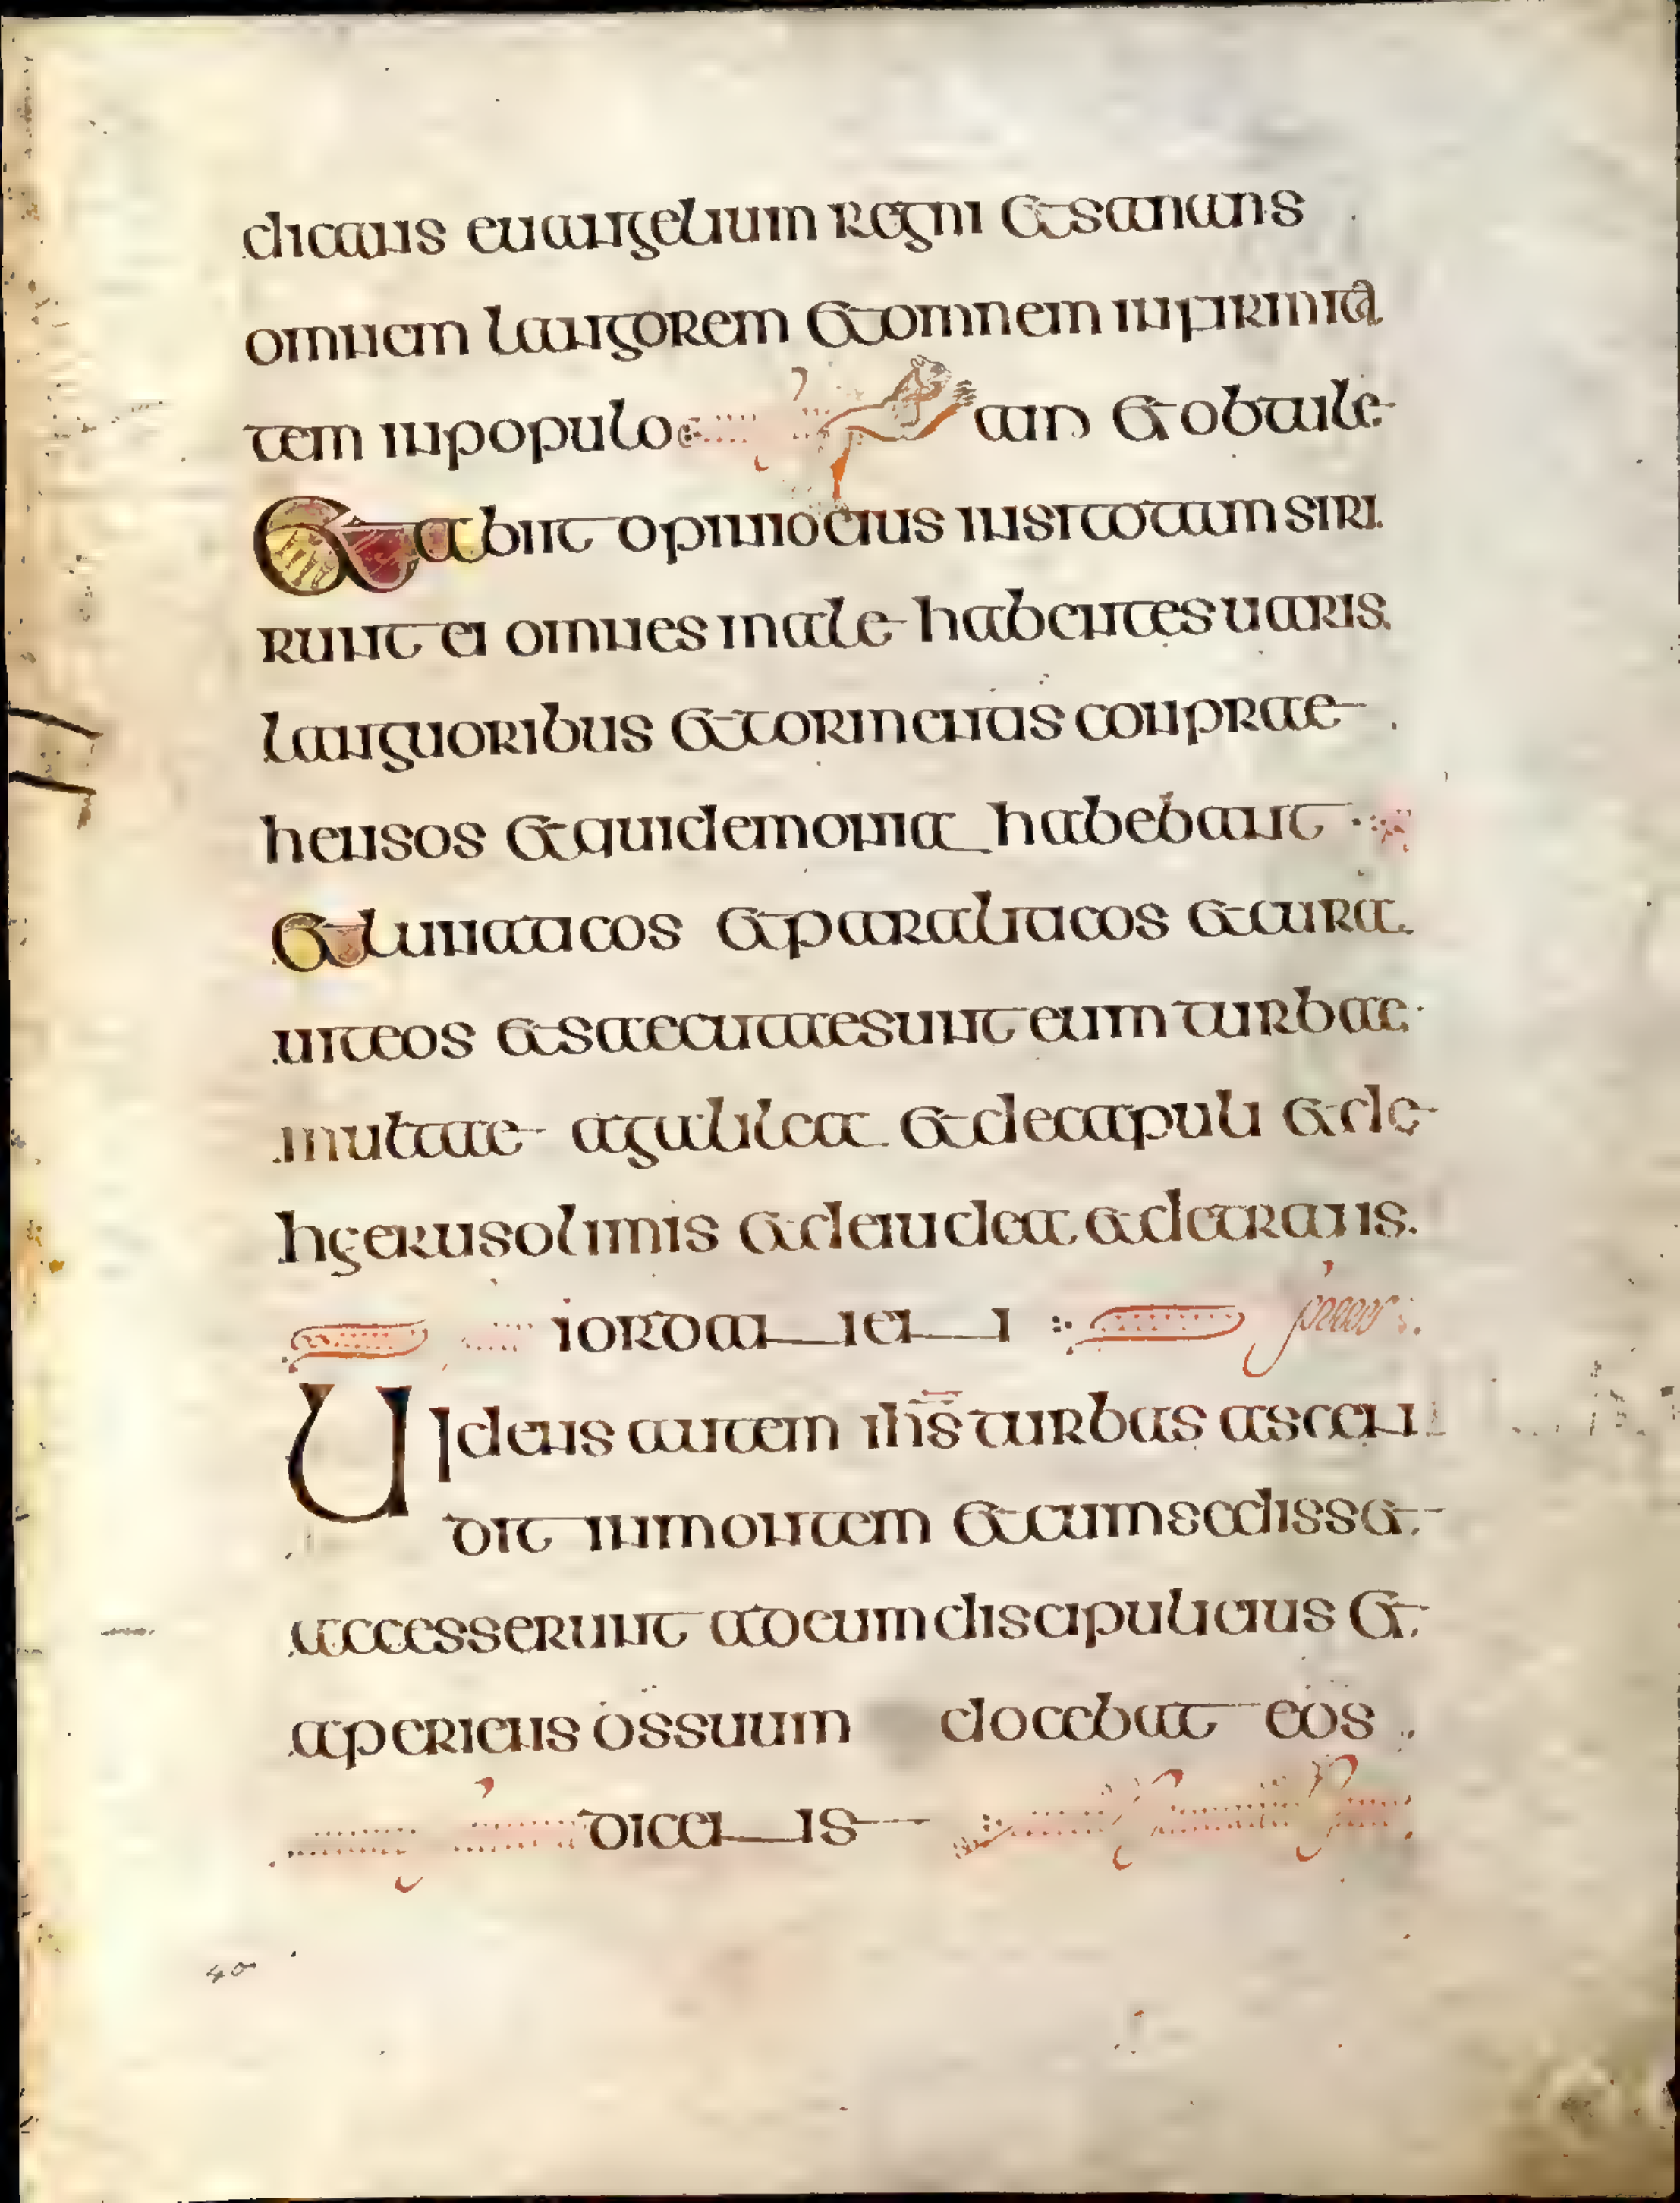 dicans euangelium regni et sanans
omnem langorem et omnem infirmita
tem in populo
am et obtule
Et abiit opinio eius in sitotam siri
runt ei omnes male habentes uaris
languoribus et tormentis conprae
hensos et qui demonia habebant
et lunaticos et paraliticos et cura
uit eos et saecutae sunt eum turbae
multae a galilea et decapuli et de
hgerusolimis et de iudea et de trans
iordanen
Uidens autem ihs turbas ascen
dit in montem et cum sedisset
accesserunt ad eum discipuli eius et
aperiens os suum docebat eos
dicens
40